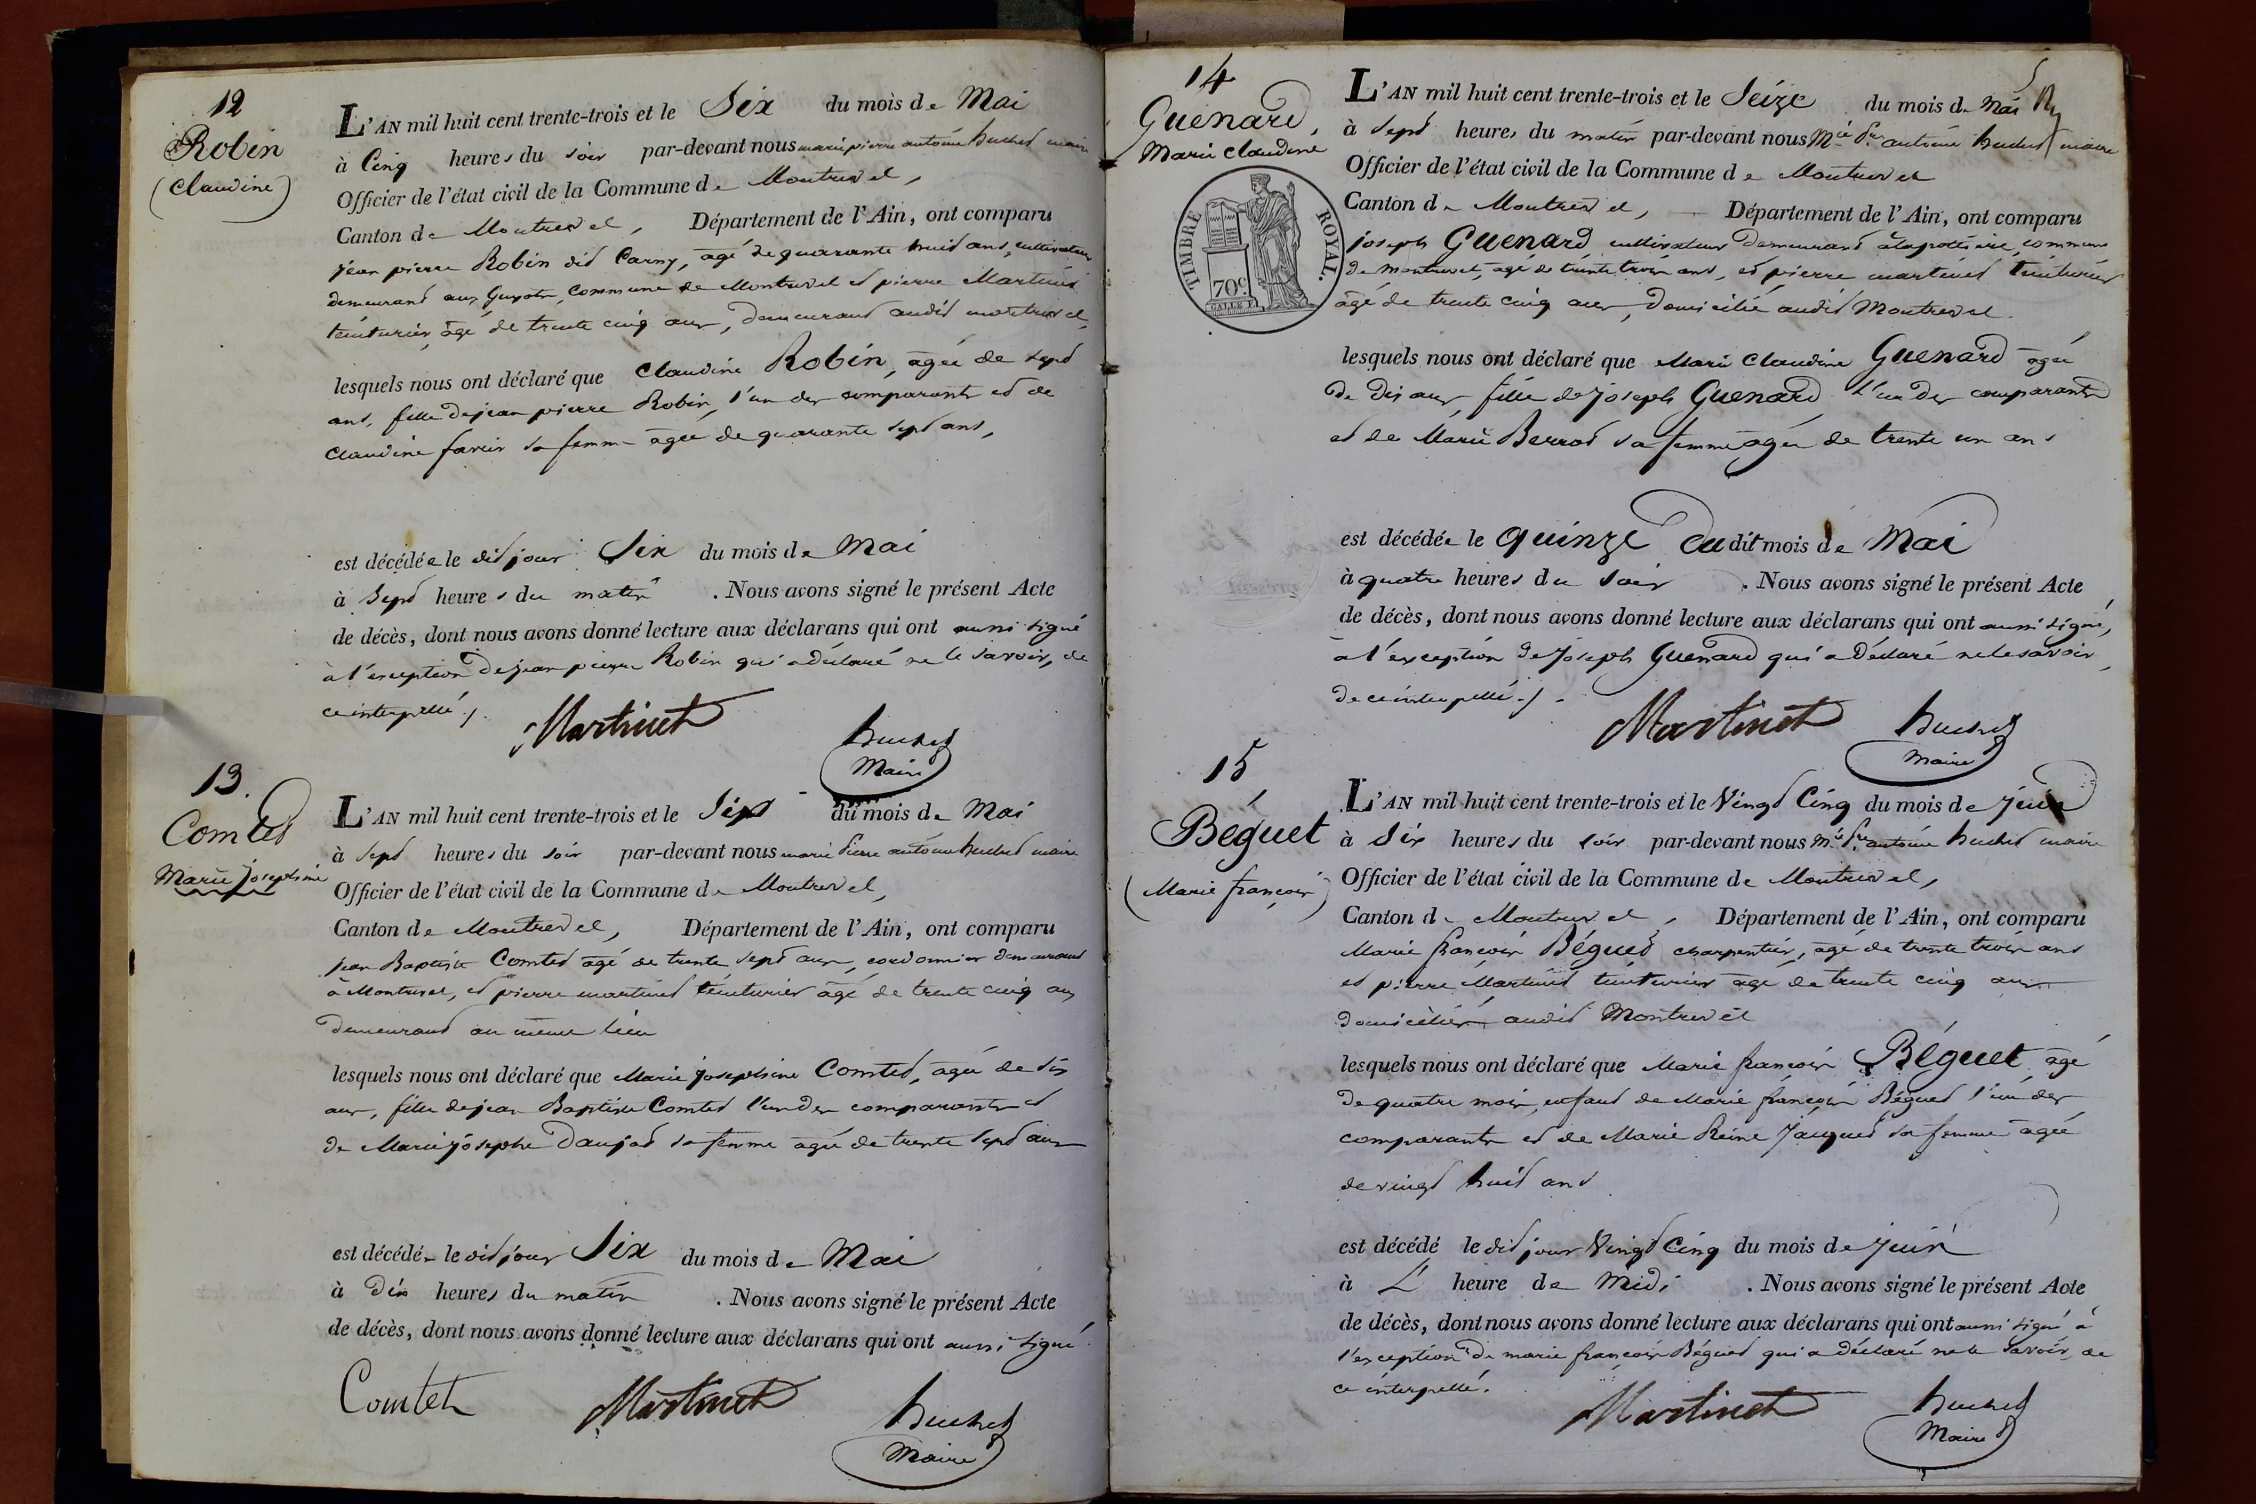 12
Robin
(Claudine)
L'AN mil huit cent trente-trois et le Six du mois de Mai
à Cinq heures du soir par-devant nous marie pierre antoine huchet maire
Officier de l'état civil de la Commune de Montrevel,
Canton de Montrevel, Département de l'Ain, ont comparu
jean pierre Robin dit Carny, agé de quarante huit ans, cultivateur
demeurant aux Guyots, commune de Montrevel et pierre Martinet
teinturier, âgé de trente cinq ans, demeurant audit montrevel,
lesquels nous ont déclaré que Claudine Robin, agée de sept
ans, fille de jean pierre Robin, l'un des comparants et de
Claudine favier sa femme agée de quarante sept ans,
est décédée le dit jour Six du mois de Mai
à Sept heures du matin . Nous avons signé le présent Acte
de décès, dont nous avons donné lecture aux déclarans qui ont aussi signé
à l'exception de jean pierre Robin qui a déclaré ne le savoir, de
ce interpellé ./.
Martinet huchet
Maire
13.
Comtet
Marie josephine
L'AN mil huit cent trente-trois et le Sept du mois de Mai
à sept heures du soir par-devant nous marie Pierre antoine huchet maire
Officier de l'état civil de la Commune de Montrevel,
Canton de Montrevel, Département de l'Ain, ont comparu
jean Baptiste Comtet âgé de trente sept ans, cordonnier demeurant
à Montrevel, et pierre martinet teinturier âgé de trente cinq ans
demeurant au même lieu
lesquels nous ont déclaré que Marie josephine Comtet, agée de six
ans, fille de jean Baptiste Comtet l'un des comparants et
de Marie josephe Daujat sa femme agée de trente sept ans
est décédée le dit jour Six du mois de Mai
à Dix heures du matin . Nous avons signé le présent Acte
de décès, dont nous avons donné lecture aux déclarans qui ont aussi signé
Comtet Martinet huchet
Maire
14
Guenard,
Marie Claudine
TIMBRE ROYAL.
70c.
L'AN mil huit cent trente-trois et le Seize du mois de Mai
à Sept heures du matin par-devant nous Mie Pre antoine huchet maire
Officier de l'état civil de la Commune de Montrevel
Canton de Montrevel, Département de l'Ain, ont comparu
joseph Guenard cultivateur demeurant à la potterie, commune
de montrevel, agé de trente trois ans, et pierre martinet teinturier
âgé de trente cinq ans, domicilié audit Montrevel.
lesquels nous ont déclaré que Marie Claudine Guenard agée
de dix ans, fille de Joseph Guenard l'un des comparants
et de Marie Berrod sa femme agée de trente un ans
est décédée le quinze du dit mois de Mai
à quatre heures du soir . Nous avons signé le présent Acte
de décès, dont nous avons donné lecture aux déclarans qui ont aussi signé,
à l'exception de Joseph Guenard qui a déclaré ne le savoir,
de ce interpellé ./.
Martinet huchet
Maire
15
Béguet
(Marie françois)
L'AN mil huit cent trente-trois et le Vingt Cinq du mois de juin
à Six heures du soir par-devant nous Mie Pre antoine huchet maire
Officier de l'état civil de la Commune de Montrevel,
Canton de Montrevel, Département de l'Ain, ont comparu
Marie françois Béguet charpentier, agé de trente trois ans
et pierre Martinet teinturier agé de trente cinq ans
domiciliés audit Montrevel
lesquels nous ont déclaré que Marie françois Béguet agé
de quatre mois, enfant de Marie françois Béguet l'un des
comparants et de Marie Reine Jacquet sa femme agée
de vingt huit ans
est décédé le dit jour Vingt Cinq du mois de juin
à L' heure de Midi . Nous avons signé le présent Acte
de décès, dont nous avons donné lecture aux déclarans qui ont aussi signé à
l'exception de marie françois Béguet qui a déclaré ne le savoir, de
ce interpellé.
Martinet huchet
Maire